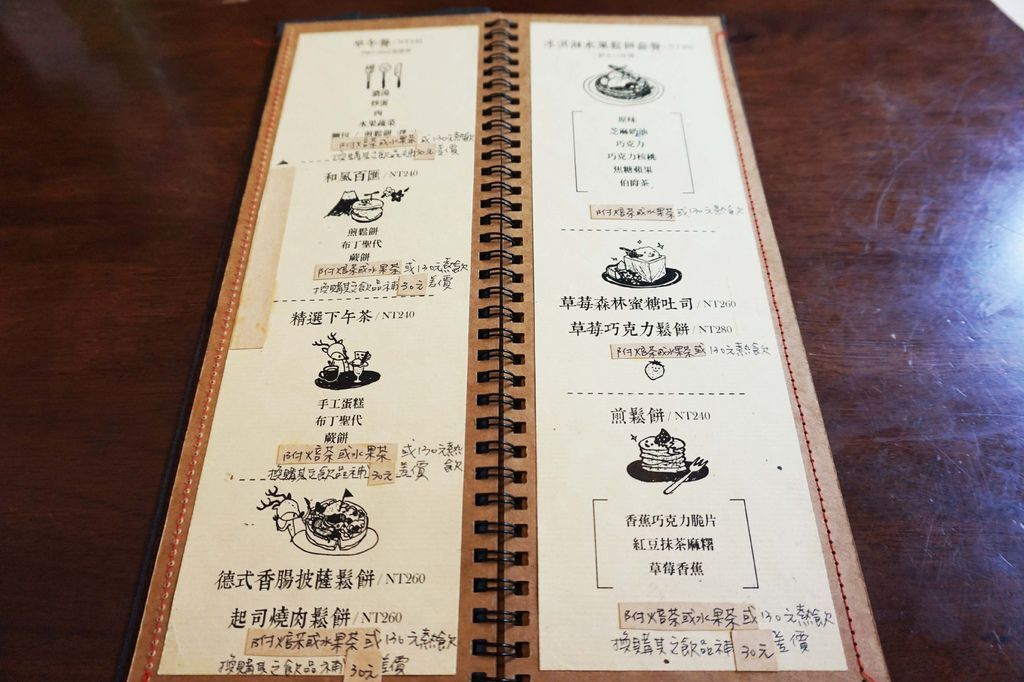 早午餐 / NT240
濃湯
炒蛋
肉
水果蔬菜
麵包 / 煎鬆餅
附焙茶或水果茶 或130元熱飲
換購其它飲品補30元差價
和風百匯 / NT240
煎鬆餅
布丁聖代
蕨餅
附焙茶或水果茶 或130元熱飲
換購其它飲品補30元差價
精選下午茶 / NT240
手工蛋糕
布丁聖代
蕨餅
附焙茶或水果茶 或130元熱飲
換購其它飲品補30元差價
德式香腸披薩鬆餅 / NT260
起司燒肉鬆餅 / NT260
附焙茶或水果茶 或130元熱飲
換購其它飲品補30元差價
冰淇淋水果鬆餅套餐
原味
芝麻奶油
巧克力
巧克力核桃
焦糖蘋果
伯爵茶
附焙茶或水果茶 或130元熱飲
草莓森林蜜糖吐司 / NT260
草莓巧克力鬆餅 / NT280
附焙茶或水果茶 或130元熱飲
煎鬆餅 / NT240
香蕉巧克力脆片
紅豆抹茶麻糬
草莓香蕉
附焙茶或水果茶 或130元熱飲
換購其它飲品補30元差價